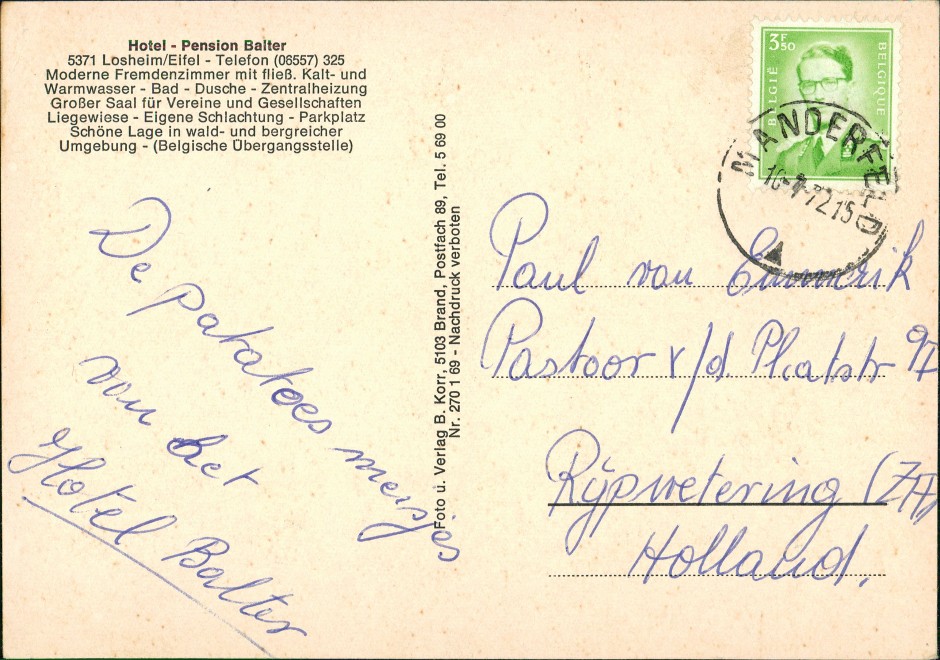 Hotel - Pension Balter
5371 Losheim/Eifel - Telefon (06557) 325
Moderne Fremdenzimmer mit fließ. Kalt- und
Warmwasser - Bad - Dusche - Zentralheizung
Großer Saal für Vereine und Gesellschaften
Liegewiese - Eigene Schlachtung - Parkplatz
Schöne Lage in wald- und bergreicher
Umgebung - (Belgische Übergangsstelle)
De patatoes meisjes
van het
Hotel Balter
Foto u. Verlag B. Korr, 5103 Brand, Postfach 89, Tel. 5 69 00
Nr. 270 1 69 - Nachdruck verboten
3F50
BELGIË
BELGIQUE
MANDERFELD
-72 15
Paul van Emmerik
Pastoor v/d. Plaatstr
Rijpwetering (ZH)
Holland.